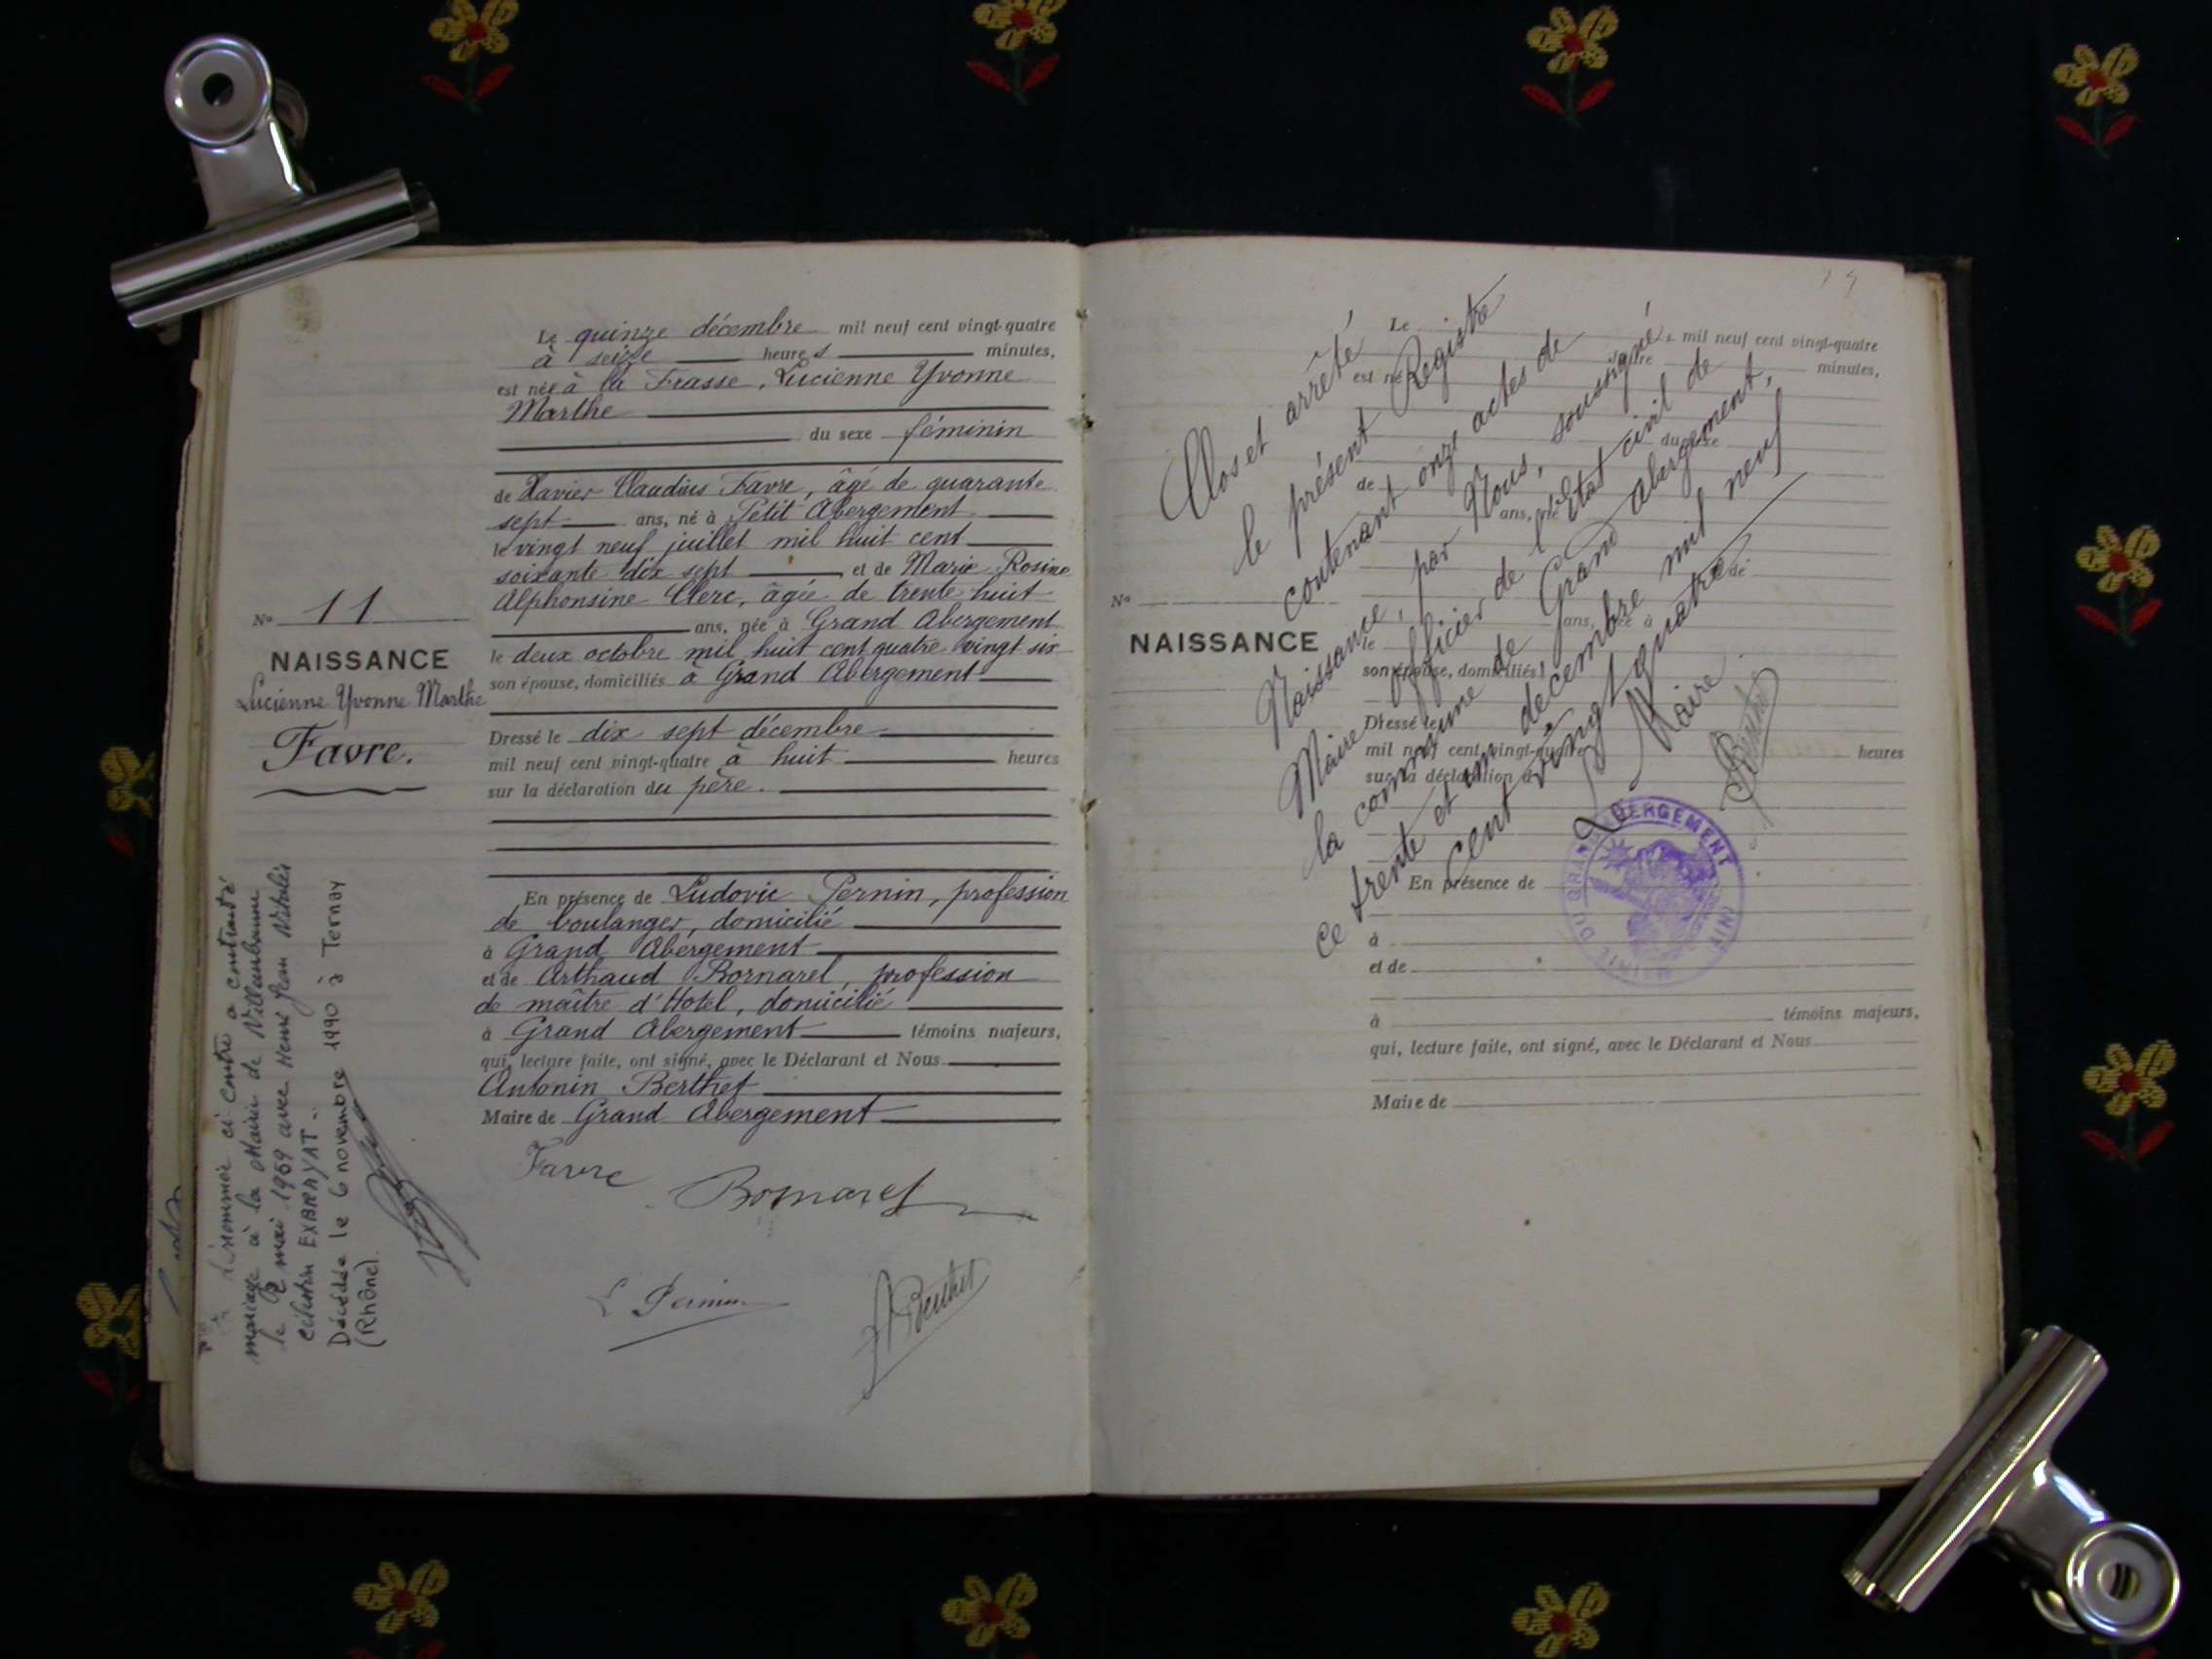 Le quinze décembre mil neuf cent vingt-quatre
à seize heures minutes,
est née à la Frasse, Lucienne Yvonne
Marthe
du sexe féminin
de Xavier Claudius Favre, âgé de quarante
sept ans, né à Petit Abergement
le vingt neuf juillet mil huit cent
soixante dix sept et de Marie Rosine
Alphonsine Clerc, âgée de trente huit
ans, née à Grand Abergement
le deux octobre mil huit cent quatre vingt six
son épouse, domiciliés à Grand Abergement
Dressé le dix sept décembre
mil neuf cent vingt-quatre à huit heures
sur la déclaration du père.
En présence de Ludovic Pernin, profession
de boulanger, domicilié
à Grand Abergement
et de Arthaud Bornarel, profession
de maître d'Hotel, domicilié
à Grand Abergement témoins majeurs,
qui, lecture faite, ont signé, avec le Déclarant et Nous
Antonin Berthet
Maire de Grand Abergement
Favre Bornarel
L Pernin
Berthet
No 11
NAISSANCE
Lucienne Yvonne Marthe
Favre.
ci contre a contracté
mariage à la Mairie de Villeurbanne
le mai 1969 avec Henri Jean
EXBRAYAT
Décédée le 6 novembre 1990 à Ternay
(Rhône).
Le mil neuf cent vingt-quatre
est né minutes,
du sexe
de
ans, né
et de
No
NAISSANCE
ans, née à
le
son épouse, domiciliés
Dressé le
mil neuf cent vingt-quatre heures
sur la déclaration d
En présence de
à
et de
à témoins majeurs,
qui, lecture faite, ont signé, avec le Déclarant et Nous
Maire de
Clos et arrêté
le présent Registre
contenant onze actes de
Naissance, par Nous, soussigné,
Maire officier de l'état civil de
la commune de Grand Abergement,
ce trente et un décembre mil neuf
cent vingt quatre
Le Maire
Berthet